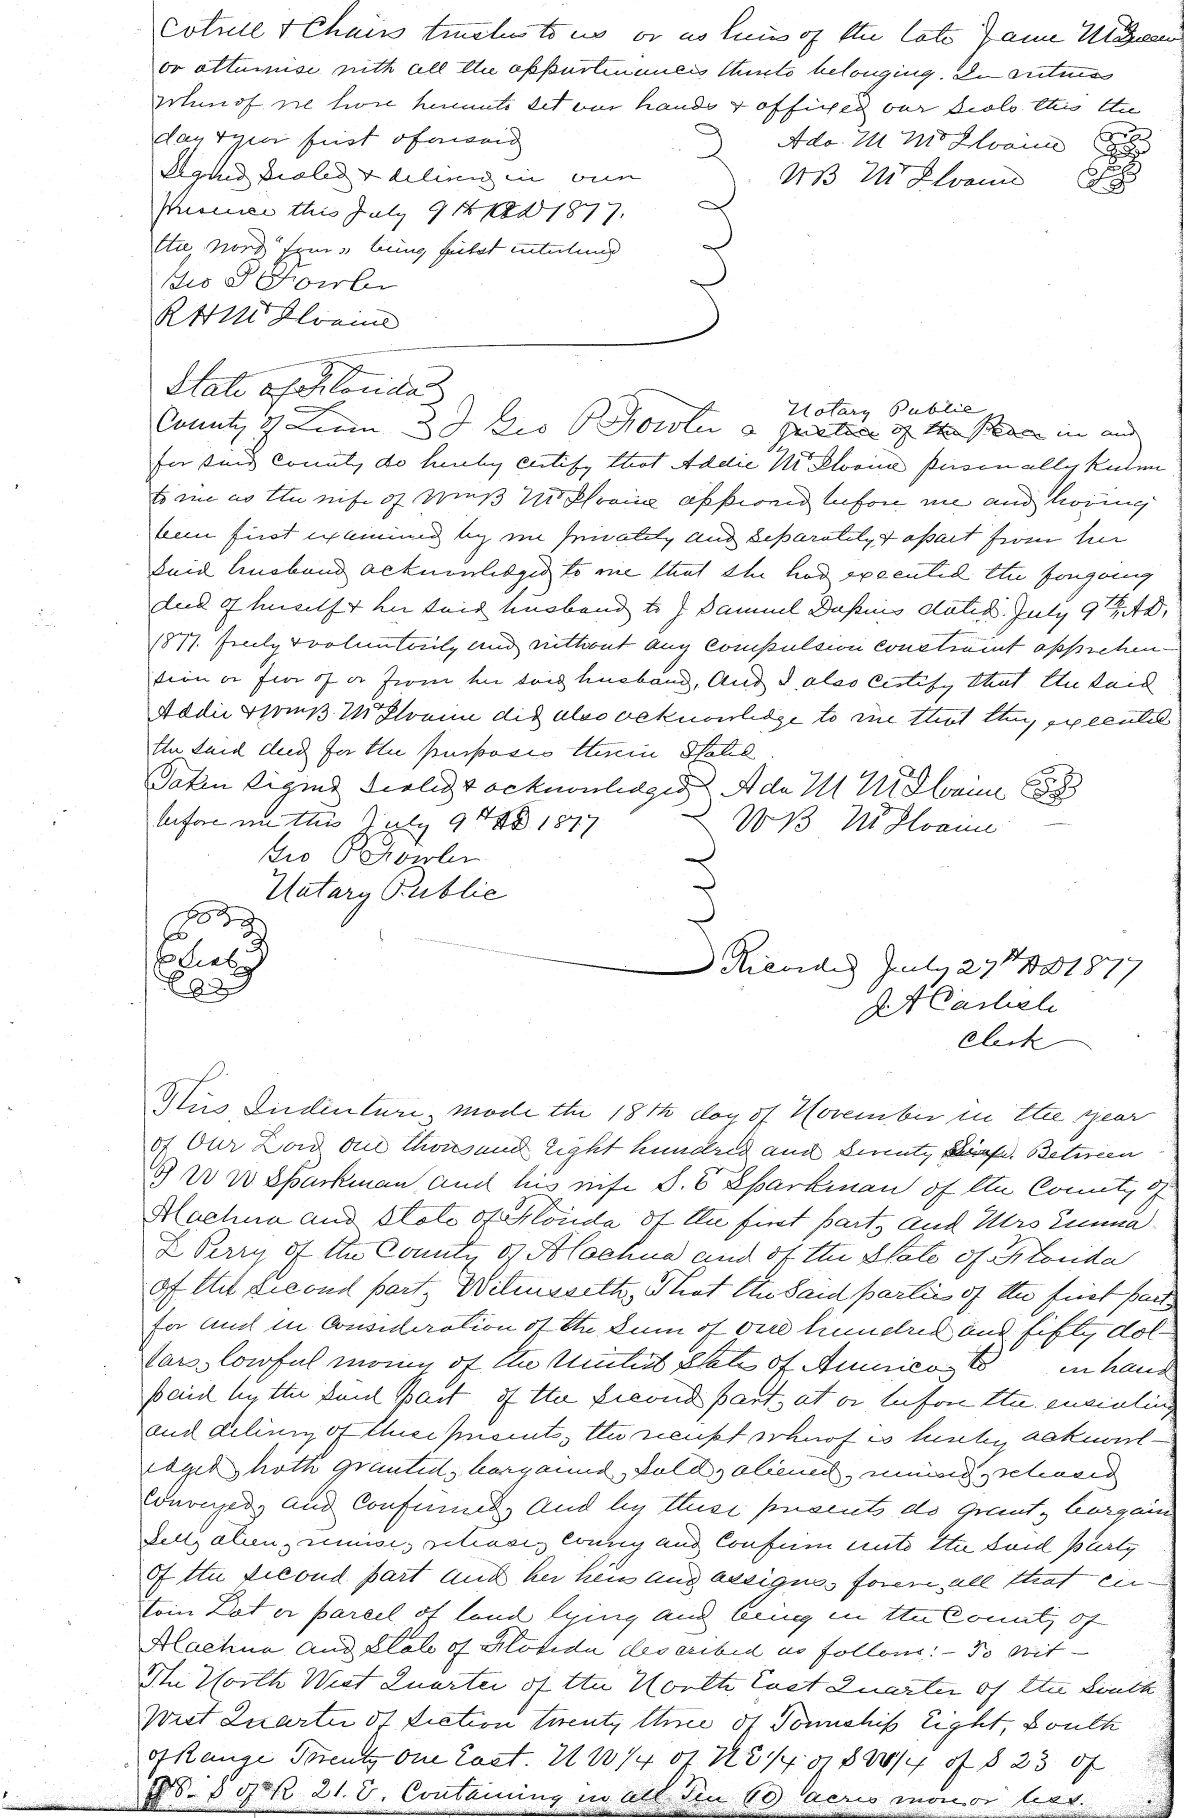 Cotrell & Chairs trustees to us or as heirs of the late Jane
or otherwise with all the appurtenances thereto belonging. In witness
whereof we have hereunto set our hands & affixed our seals this the
day & year first aforesaid
Ada M McIlvaine
Signed Sealed & delivered in our
W B McIlvaine
presence this July 9th AD 1877.
the word "four" being first interlined
Geo P Fowler
R H McIlvaine
State of Florida
County of Leon I Geo P Fowler a Notary Public Justice of the Peace in and
for said County do hereby certify that Addie McIlvaine personally known
to me as the wife of Wm B McIlvaine appeared before me and having
been first examined by me privately and separately & apart from her
said husband acknowledged to me that she had executed the foregoing
deed of herself & her said husband to J Samuel dated July 9th, A.D.
1877. freely & voluntarily and without any compulsion constraint apprehen-
sion or fear of or from her said husband, And I also certify that the said
Addie & Wm B. McIlvaine did also acknowledge to me that they executed
the said deed for the purposes therein stated.
Taken signed sealed & acknowledged Ada M McIlvaine
before me this July 9th AD 1877 W B McIlvaine
Geo P Fowler
Notary Public
Seal
Recorded July 27th AD 1877
J. A Carlisle
Clerk
This Indenture, made the 18th day of November in the year
of Our Lord one thousand Eight hundred and Seventy Between
G W W Sparkman and his wife S. E Sparkman of the County of
Alachua and State of Florida of the first part, and Mrs Emma
L Perry of the County of Alachua and of the State of Florida
of the second part, Witnesseth, That the Said parties of the first part,
for and in consideration of the Sum of one hundred and fifty dol-
lars, lawful money of the United States of America, to in hand
paid by the Said part of the Second part, at or before the ensealing
and delivery of these presents, the receipt whereof is hereby acknowl-
edged, hath granted, bargained, Sold, aliened, remised, released
Conveyed, and Confirmed, and by these presents do grant, bargain
Sell, alien, remise, release, convey and Confirm unto the said party
of the second part and her heirs and assigns, forever, all that cer-
tain Lot or parcel of land lying and being in the County of
Alachua and State of Florida described as follows:- To wit -
The North West Quarter of the North East Quarter of the South
West Quarter of Section twenty three of Township Eight, South
of Range Twenty One East. N W 1/4 of N E 1/4 of S W 1/4 of S 23 of
8. S of R 21. E. Containing in all Ten (10) acres more or less.